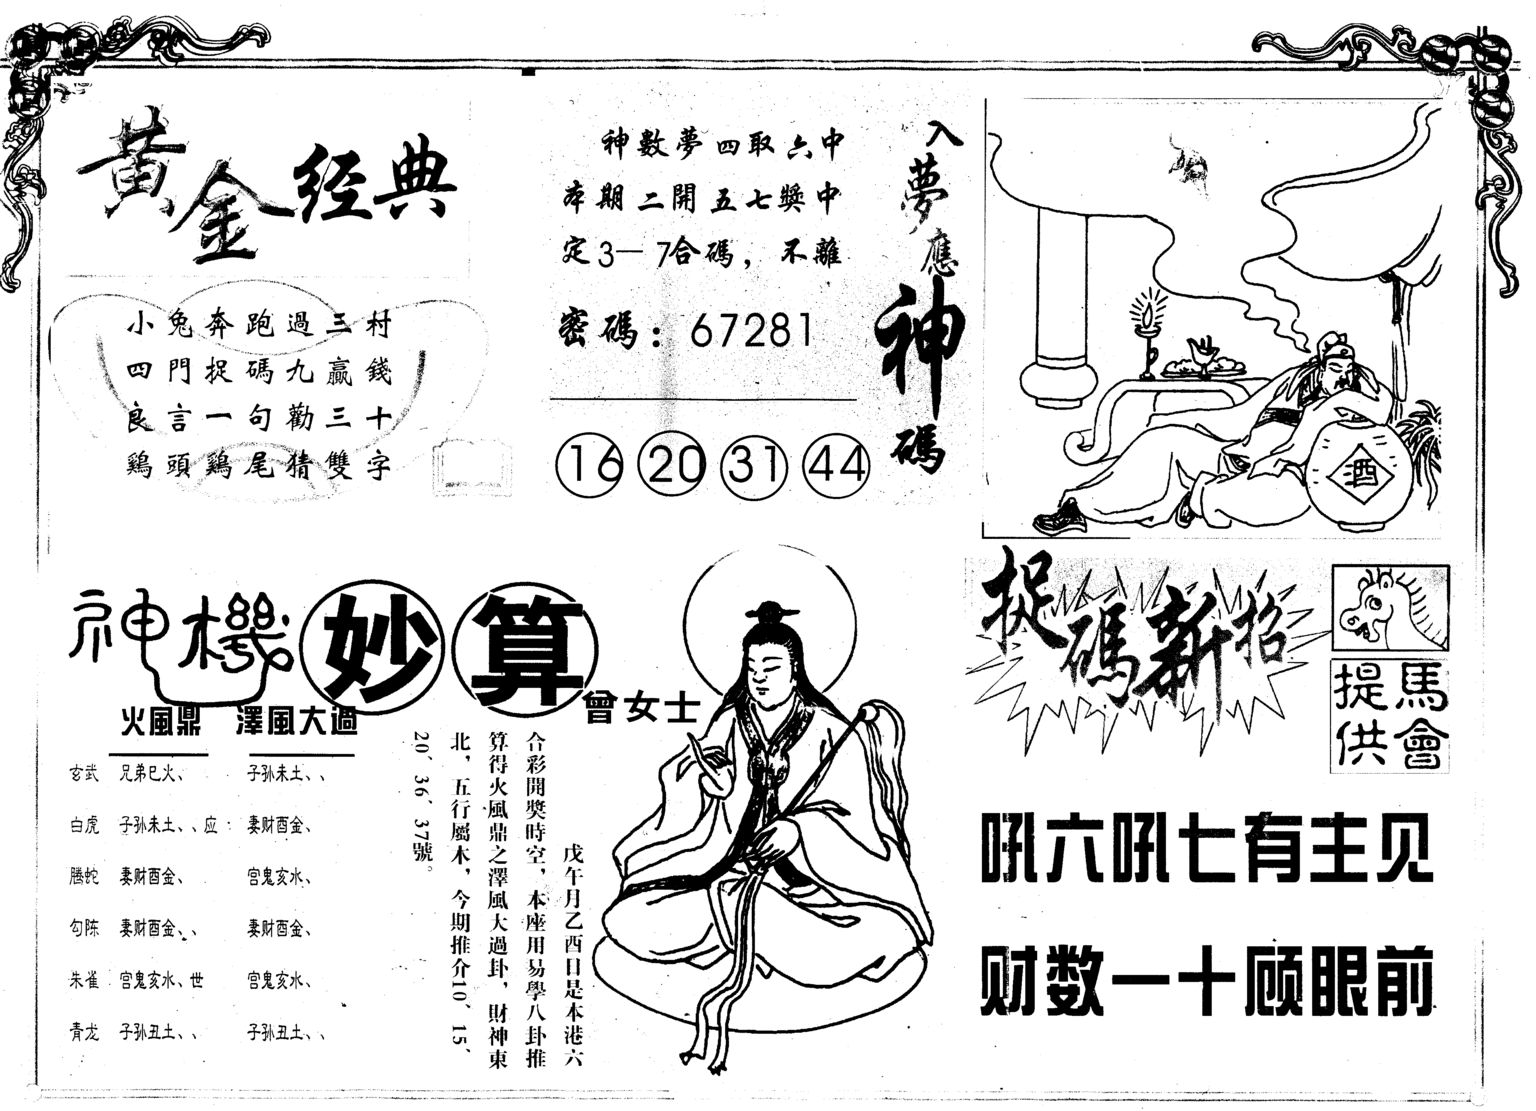 黄金经典
小兔奔跑過三村
四門捉碼九贏錢
良言一句勸三十
鷄頭鷄尾猜雙字
神數夢四取六中
本期二開五七獎中
定3—7合碼，不離
密碼：67281
16 20 31 44
入夢應神碼
酒
神機妙算
曾女士
火風鼎 澤風大過
玄武 兄弟巳火、 子孙未土、、
白虎 子孙未土、、应 妻财酉金、
腾蛇 妻财酉金、 宫鬼亥水、
勾陈 妻财酉金、、 妻财酉金、
朱雀 宫鬼亥水、世 宫鬼亥水、
青龙 子孙丑土、、 子孙丑土、、
戊午月乙酉日是本港六
合彩開獎時空，本座用易學八卦推
算得火風鼎之澤風大過卦，財神東
北，五行屬木，今期推介10、15、
20、36、37號。
捉碼新招
馬會
提供
吼六吼七有主见
财数一十顾眼前